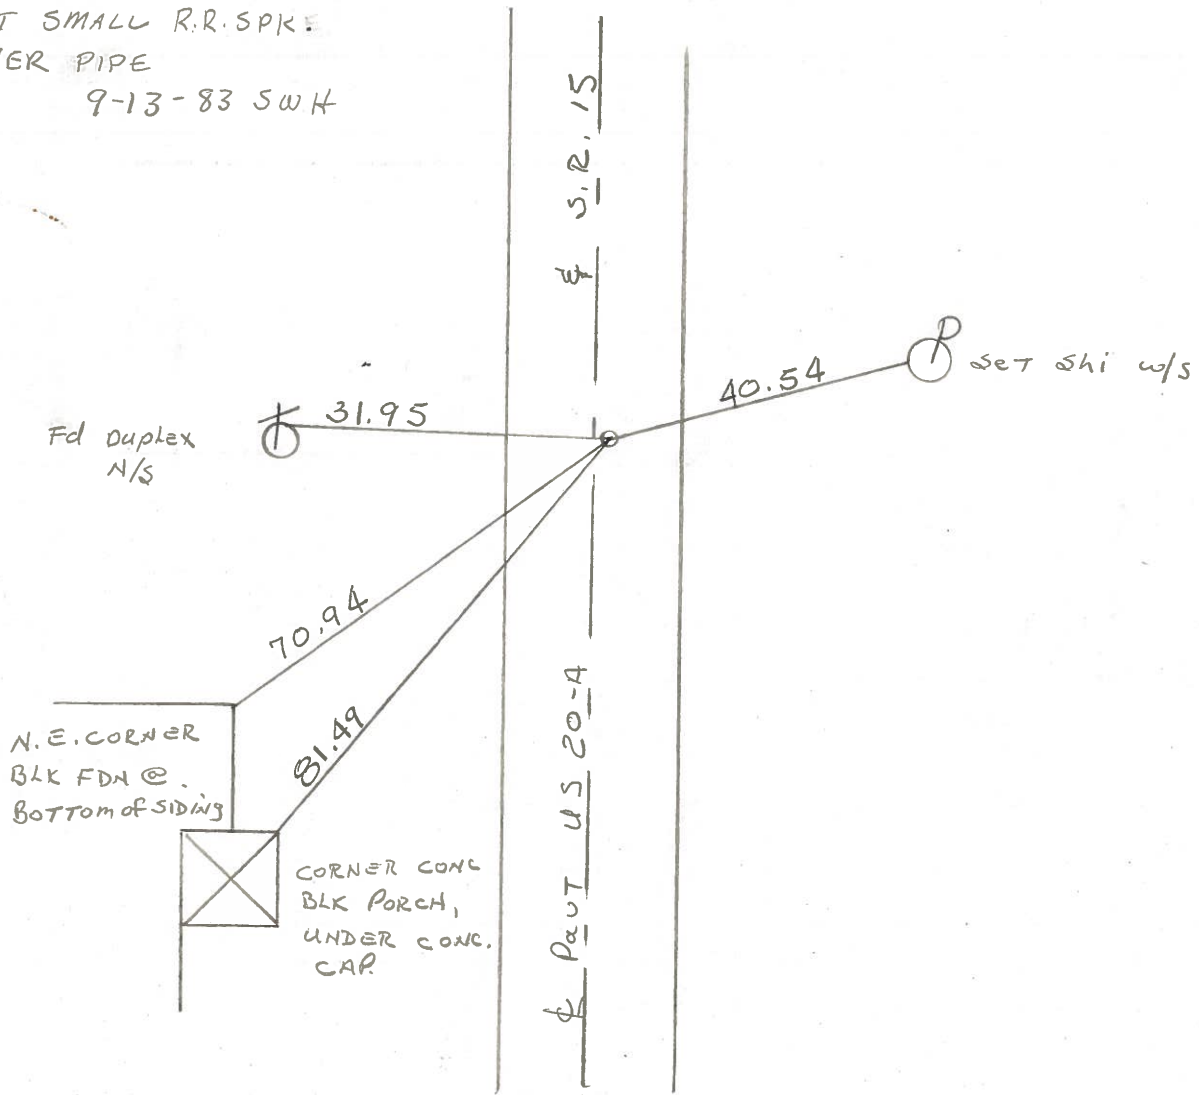 T SMALL R.R. SPK.
ER PIPE
9-13-83 SWH
℄ S.R. 15
31.95
40.54
Set Shi w/s
Fd Duplex
N/S
70.94
81.49
N.E. CORNER
BLK FDN @
BOTTOM of SIDING
CORNER CONC
BLK PORCH,
UNDER CONC.
CAP.
℄ PavT US 20-A